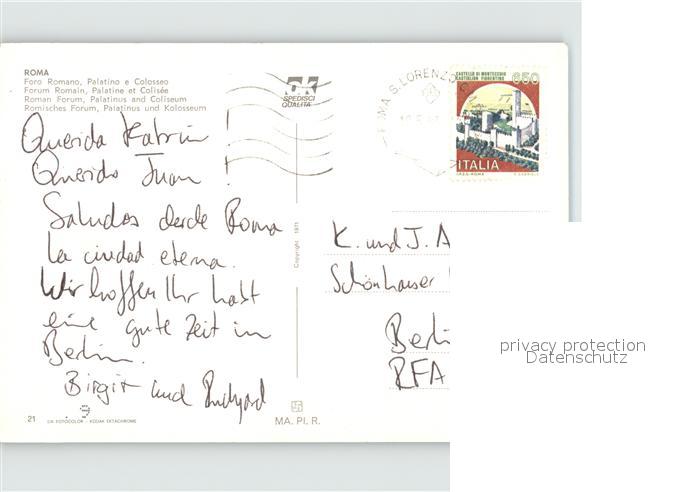 ROMA
Foro Romano, Palatino e Colosseo
Forum Romain, Palatine et Colisée
Roman Forum, Palatinus and Coliseum
Romisches Forum, Palatinus und Kolosseum
SPEDISCI
QUALITÀ
ROMA S. LORENZO
CASTELLO DI MONTECCHIO
CASTIGLION FIORENTINO
650
ITALIA
Querida Katrin!
Querido Juan!
Saludos desde Roma
la ciudad eterna.
Wir hoffen Ihr habt
eine gute Zeit in
Berlin.
Birgit und
Copyright 1971
K. und J. A
Schönhauser
Berli
RFA
privacy protection
Datenschutz
21
FOTOCOLOR - KODAK EKTACHROME
MA. PI. R.